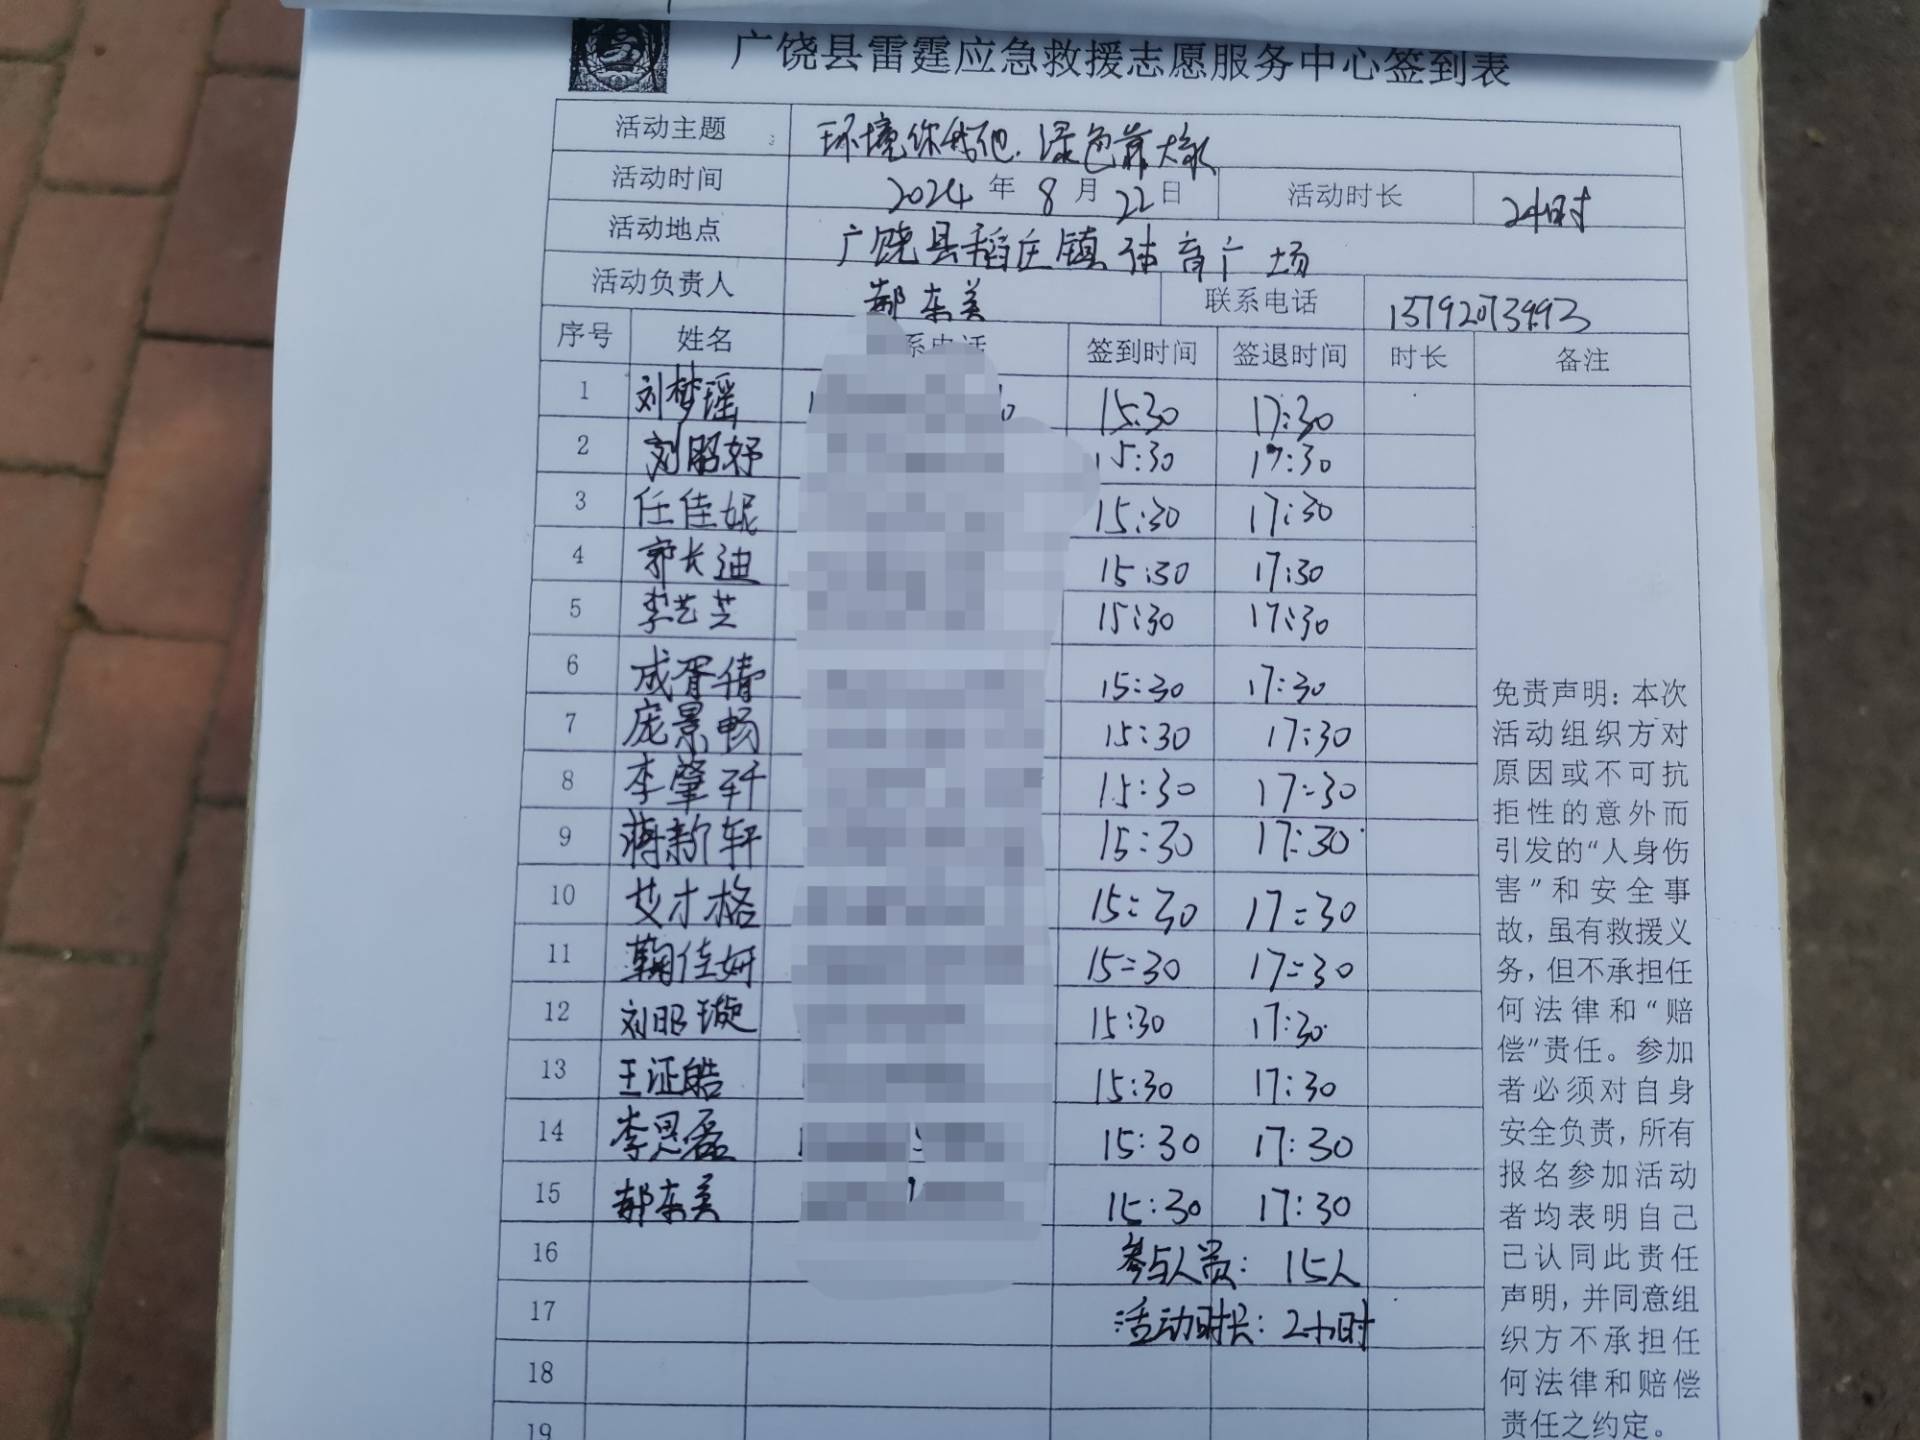 广饶县雷霆应急救援志愿服务中心签到表
活动主题 环境你我他.绿色靠大家
活动时间 2024年8月22日 活动时长 2小时
活动地点 广饶县稻庄镇体育广场
活动负责人 郝东美 联系电话 13792073493
序号 姓名 系电话 签到时间 签退时间 时长 备注
1 刘梦瑶 15:30 17:30
2 刘昭妤 15:30 17:30
3 任佳妮 15:30 17:30
4 郭长迪 15:30 17:30
5 李艺芝 15:30 17:30
6 成胥倩 15:30 17:30
7 庞景畅 15:30 17:30
8 李肇轩 15:30 17:30
9 蒋新轩 15:30 17:30
10 艾才格 15:30 17:30
11 鞠佳妍 15:30 17:30
12 刘昭璇 15:30 17:30
13 王证皓 15:30 17:30
14 李思磊 15:30 17:30
15 郝东美 15:30 17:30
16 参与人员: 15人
17 活动时长: 2小时
18
19
免责声明:本次
活动组织方对
原因或不可抗
拒性的意外而
引发的“人身伤
害”和安全事
故,虽有救援义
务,但不承担任
何法律和“赔
偿”责任。参加
者必须对自身
安全负责,所有
报名参加活动
者均表明自己
已认同此责任
声明,并同意组
织方不承担任
何法律和赔偿
责任之约定。